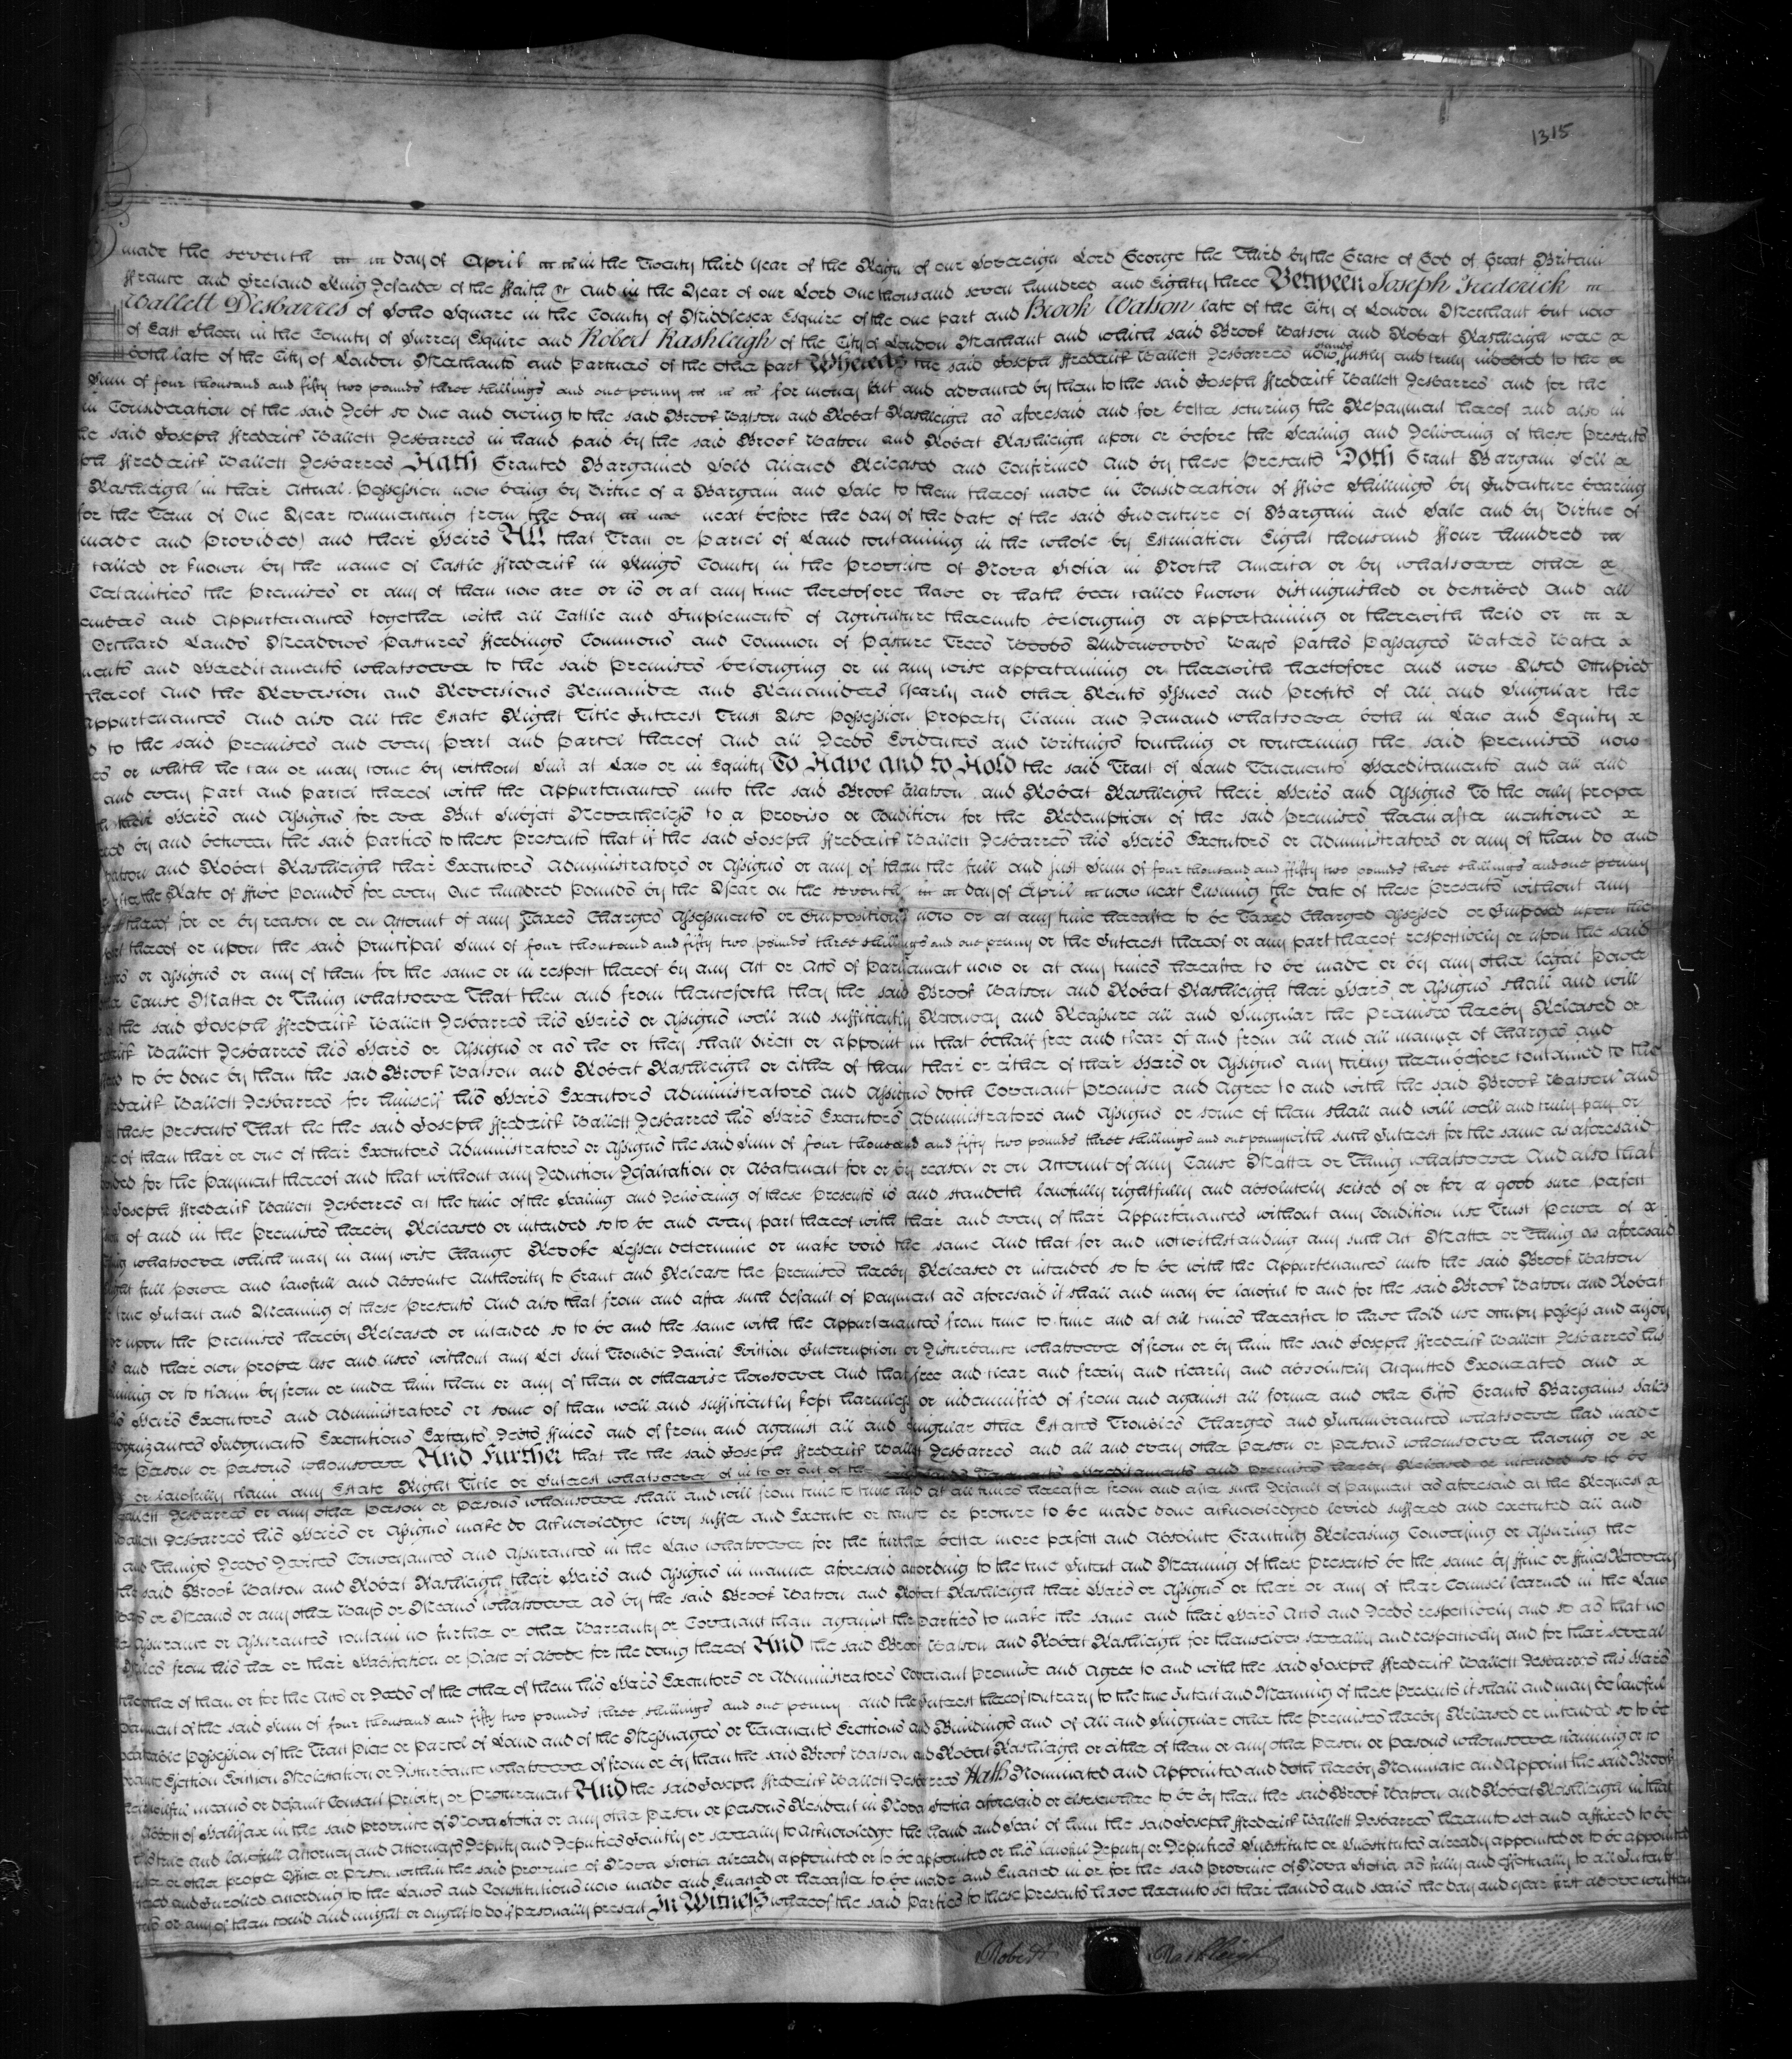 1315
made the seventh day of April in the Twenty third year of the Reign of our Sovereign Lord George the Third by the Grace of God of Great Britain
ffrance and Ireland King Defender of the ffaith &c And in the Year of our Lord One thousand seven hundred and Eighty three Between Joseph Frederick
Wallett Desbarres of Soho Square in the County of Middlesex Esquire of the one part and Brook Watson late of the City of London Merchant but now
of East Sheen in the County of Surrey Esquire and Robert Rashleigh of the City of London Merchant and which said Brook Watson and Robert Rashleigh were
both late of the City of London Merchants and Partners of the other part Whereas the said Joseph ffrederick Wallett Desbarres now stands justly and truly indebted to the
Sum of four thousand and fifty two pounds three shillings and one penny for money lent and advanced by them to the said Joseph ffrederick Wallett Desbarres and for the
in Consideration of the said Debt so due and owing to the said Brook Watson and Robert Rashleigh as aforesaid and for better securing the Repayment thereof and also in
the said Joseph ffrederick Wallett Desbarres in hand paid by the said Brook Watson and Robert Rashleigh upon or before the Sealing and Delivering of these Presents
ph ffrederick Wallett Desbarres Hath Granted Bargained Sold Aliened Released and Confirmed and by these Presents Doth Grant Bargain Sell
Rashleigh (in their Actual Possession now being by Virtue of a Bargain and Sale to them thereof made in Consideration of ffive Shillings by Indenture bearing
for the Term of One Year commencing from the day next before the day of the date of the said Indenture of Bargain and Sale and by Virtue of
made and Provided) and their Heirs All that Tract or Parcel of Land containing in the whole by Estimation Eight thousand ffour hundred
called or known by the name of Castle ffrederick in Kings County in the Province of Nova Scotia in North America or by whatsoever other
Certainties the Premises or any of them now are or is or at any time heretofore have or hath been called known distinguished or described And all
embers and Appurtenances together with all Cattle and Implements of Agriculture thereunto belonging or appertaining or therewith held or
Orchard Lands Meadows Pastures ffeedings Commons and Common of Pasture Trees Woods Underwoods Ways Paths Passages Waters Water
ments and Hereditaments whatsoever to the said Premises belonging or in any wise appertaining or therewith heretofore and now Used Occupied
thereof And the Reversion and Reversions Remainder and Remainders Yearly and other Rents Issues and Profits of All and Singular the
Appurtenances And also All the Estate Right Title Interest Trust Use Possession Property Claim and Demand whatsoever both in Law and Equity
to the said Premises and every Part and Parcel thereof And all Deeds Evidences and Writings touching or concerning the said Premises now
es or which he can or may come by without Suit at Law or in Equity To Have and to Hold the said Tract of Land Tenements Hereditaments and all and
and every Part and Parcel thereof with the Appurtenances unto the said Brook Watson and Robert Rashleigh their Heirs and Assigns To the only proper
their Heirs and Assigns for ever But Subject Nevertheless to a Proviso or Condition for the Redemption of the said Premises hereinafter mentioned
by and between the said Parties to these Presents that if the said Joseph ffrederick Wallett Desbarres his Heirs Executors or Administrators or any of them do and
Watson and Robert Rashleigh their Executors Administrators or Assigns or any of them the full and just Sum of four thousand and ffifty two pounds three shillings and one penny
after the Rate of ffive Pounds for every One hundred Pounds by the Year on the seventh day of April now next Ensuing the date of these Presents without any
thereof for or by reason or on Account of any Taxes Charges Assessments or Impositions now or at any time hereafter to be Taxed Charged Assessed or Imposed upon the
thereof or upon the said Principal Sum of four thousand and fifty two pounds three shillings and one penny or the Interest thereof or any part thereof respectively or upon the said
or Assigns or any of them for the same or in respect thereof by any Act or Acts of Parliament now or at any times hereafter to be made or by any other legal Power
Cause Matter or Thing whatsoever That then and from thenceforth they the said Brook Watson and Robert Rashleigh their Heirs or Assigns shall and will
the said Joseph ffrederick Wallett Desbarres his Heirs or Assigns well and sufficiently Reconvey and Reassure all and Singular the Premises hereby Released or
Wallett Desbarres his Heirs or Assigns or as he or they shall direct or appoint in that behalf free and clear of and from all and all manner of Charges and
to be done by them the said Brook Watson and Robert Rashleigh or either of them their or either of their Heirs or Assigns any thing hereinbefore contained to the
Wallett Desbarres for himself his Heirs Executors Administrators and Assigns doth Covenant Promise and Agree to and with the said Brook Watson and
these Presents That he the said Joseph ffrederick Wallett Desbarres his Heirs Executors Administrators and Assigns or some of them shall and will well and truly pay or
of them their or one of their Executors Administrators or Assigns the said Sum of four thousand and fifty two pounds three shillings and one penny with such Interest for the same as aforesaid
for the Payment thereof and that without any Deduction Defalcation or Abatement for or by reason or on Account of any Cause Matter or Thing whatsoever And also that
Joseph ffrederick Wallett Desbarres at the time of the Sealing and Delivering of these Presents is and standeth lawfully rightfully and absolutely seised of or for a good sure perfect
of and in the Premises hereby Released or intended so to be and every part thereof with their and every of their Appurtenances without any Condition use Trust Power of
whatsoever which may in any wise Change Revoke Lessen determine or make void the same And that for and notwithstanding any such Act Matter or Thing as aforesaid
full power and lawfull and Absolute Authority to Grant and Release the Premises hereby Released or intended so to be with the Appurtenances unto the said Brook Watson
true Intent and Meaning of these Presents And also that from and after such default of Payment as aforesaid it shall and may be lawful to and for the said Brook Watson and Robert
upon the Premises hereby Released or intended so to be and the same with the Appurtenances from time to time and at all times hereafter to have hold use occupy possess and enjoy
and their own proper use and uses without any Let Suit Trouble Denial Eviction Interruption or Disturbance whatsoever of from or by him the said Joseph ffrederick Wallett Desbarres his
or to claim by from or under him them or any of them or otherwise howsoever And that free and clear and freely and clearly and absolutely Acquitted Exonerated and
Heirs Executors and Administrators or some of them well and sufficiently kept harmless or indemnified of from and against all former and other Gifts Grants Bargains Sales
Judgments Executions Extents Debts ffines and of from and against all and singular other Estates Troubles Charges and Incumbrances whatsoever had made
Person or Persons whomsoever And Further that he the said Joseph ffrederick Wallett Desbarres and all and every other Person or Persons whomsoever having or
or lawfully claim any Estate Right Title or Interest whatsoever of in to or out of the Hereditaments and Premises hereby Released or intended so to be
Wallett Desbarres or any other Person or Persons whomsoever shall and will from time to time and at all times hereafter from and after such Default of Payment as aforesaid at the Request
Wallett Desbarres his Heirs or Assigns make do Acknowledge levy suffer and Execute or cause or procure to be made done acknowledged levied suffered and executed all and
and Things Deeds Devices Conveyances and Assurances in the Law whatsoever for the further better more perfect and Absolute Granting Releasing Conveying or Assuring the
the said Brook Watson and Robert Rashleigh their Heirs and Assigns in manner aforesaid according to the true Intent and Meaning of these Presents be the same by ffine or ffines Recovery
or Means or any other Ways or Means whatsoever as by the said Brook Watson and Robert Rashleigh their Heirs or Assigns or their or any of their Counsel learned in the Law
Assurance or Assurances contain no further or other Warranty or Covenant than against the Parties to make the same and their Heirs Acts and Deeds respectively and so as that no
Miles from his her or their Habitation or Place of Abode for the doing thereof And the said Brook Watson and Robert Rashleigh for themselves severally and respectively and for their several
the other of them or for the Acts or Deeds of the other of them his Heirs Executors or Administrators Covenant Promise and Agree to and with the said Joseph ffrederick Wallett Desbarres his Heirs
Payment of the said Sum of four thousand and fifty two pounds three shillings and one penny and the Interest thereof contrary to the true Intent and Meaning of these Presents it shall and may be lawful
peaceable Possession of the Tract Piece or Parcel of Land and of the Messuages or Tenements Erections and Buildings and of All and Singular other the Premises hereby Released or intended so to be
Ejection Eviction Molestation or Disturbance whatsoever of from or by them the said Brook Watson and Robert Rashleigh or either of them or any other Person or Persons whomsoever claiming or to
means or default Consent Privity or Procurement And the said Joseph ffrederick Wallett Desbarres Hath Nominated and Appointed and doth hereby Nominate and Appoint the said Brook
of Halifax in the said Province of Nova Scotia or any other Person or Persons Resident in Nova Scotia aforesaid or elsewhere to be by them the said Brook Watson and Robert Rashleigh in that
his true and lawfull Attorney and Attorneys Deputy and Deputies Jointly or severally to Acknowledge the Hand and Seal of him the said Joseph ffrederick Wallett Desbarres hereunto set and affixed to be
or other proper Officer or Person within the said Province of Nova Scotia already appointed or to be appointed or his lawful Deputy or Deputies Substitute or Substitutes already appointed or to be appointed
and Inrolled according to the Laws and Constitutions now made and Enacted or hereafter to be made and Enacted in or for the said Province of Nova Scotia as fully and effectually to all Intents
or any of them could and might or ought to do if personally present In Witness whereof the said Parties to these Presents have hereunto set their hands and seals the day and year first above written
Robert Rashleigh